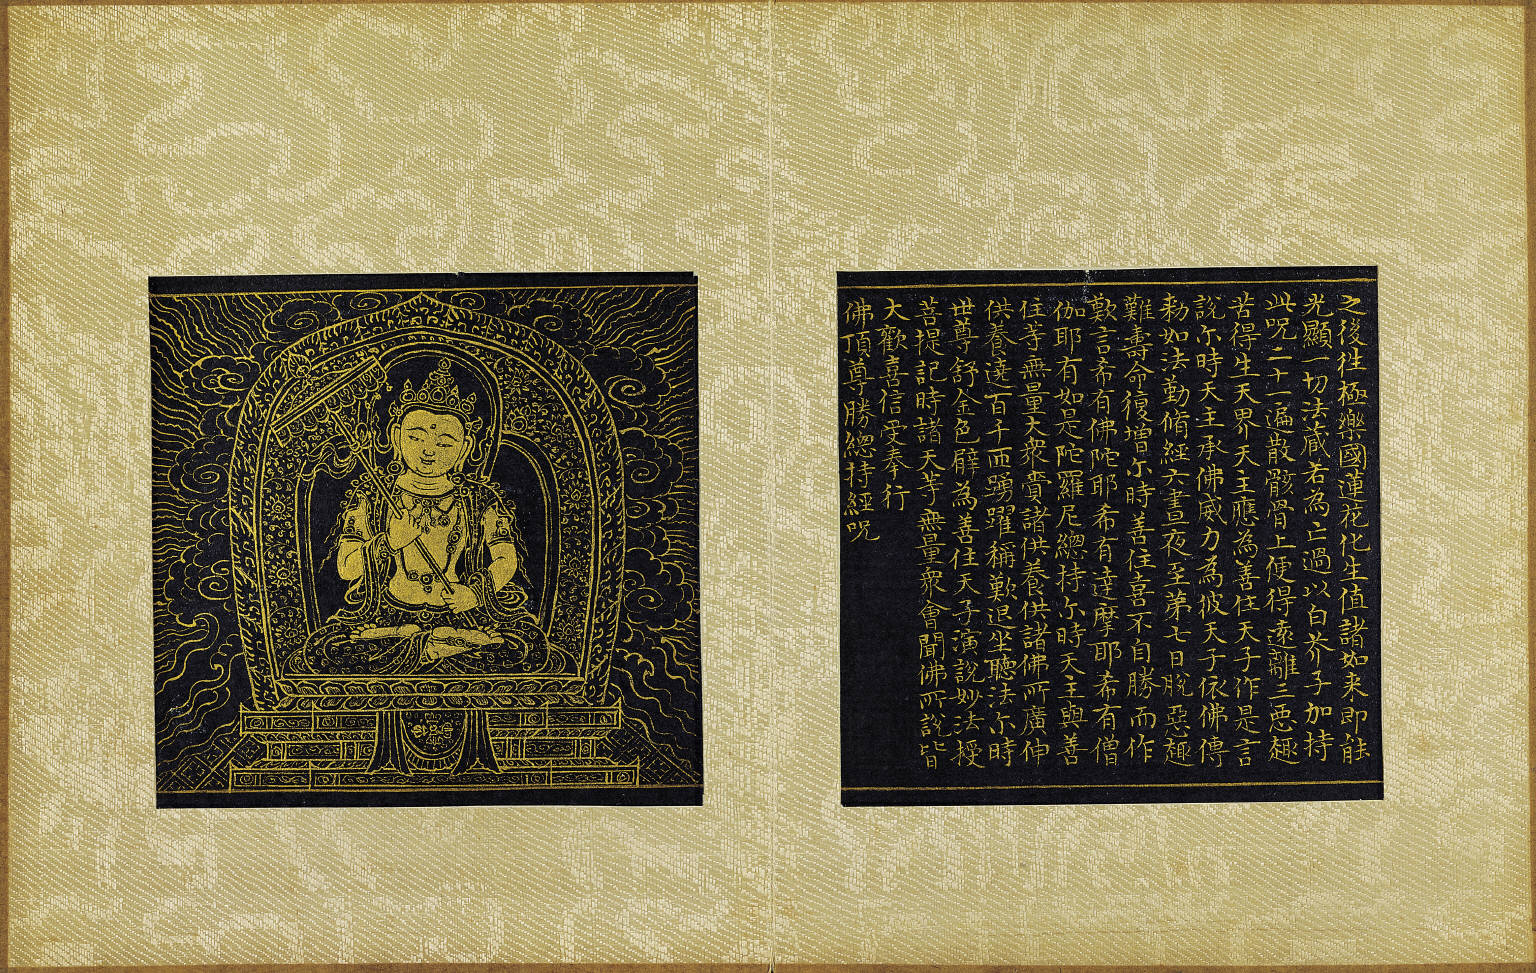 之後往極樂國蓮花化生值諸如来即能
光顯一切法蔵若為亡過以白芥子加持
此呪二十一遍散骸骨上便得逺離三惡趣
苦得生天界天主應為善住天子作是言
說尓時天主承佛威力為彼天子依佛傳
勑如法勤脩經六晝夜至第七日脫惡趣
難壽命復增尓時善住喜不自勝而作
歎言希有佛陀耶希有達摩耶希有僧
伽耶有如是陀羅尼緫持尓時天主與善
住等無量大衆賫諸供養供諸佛所廣伸
供養遶百千匝踴躍稱歎退坐聽法尓時
世尊舒金色臂為善住天子演說妙法授
菩提記時諸天等無量衆會聞佛所說皆
大歡喜信受奉行
佛頂尊勝緫持經呪